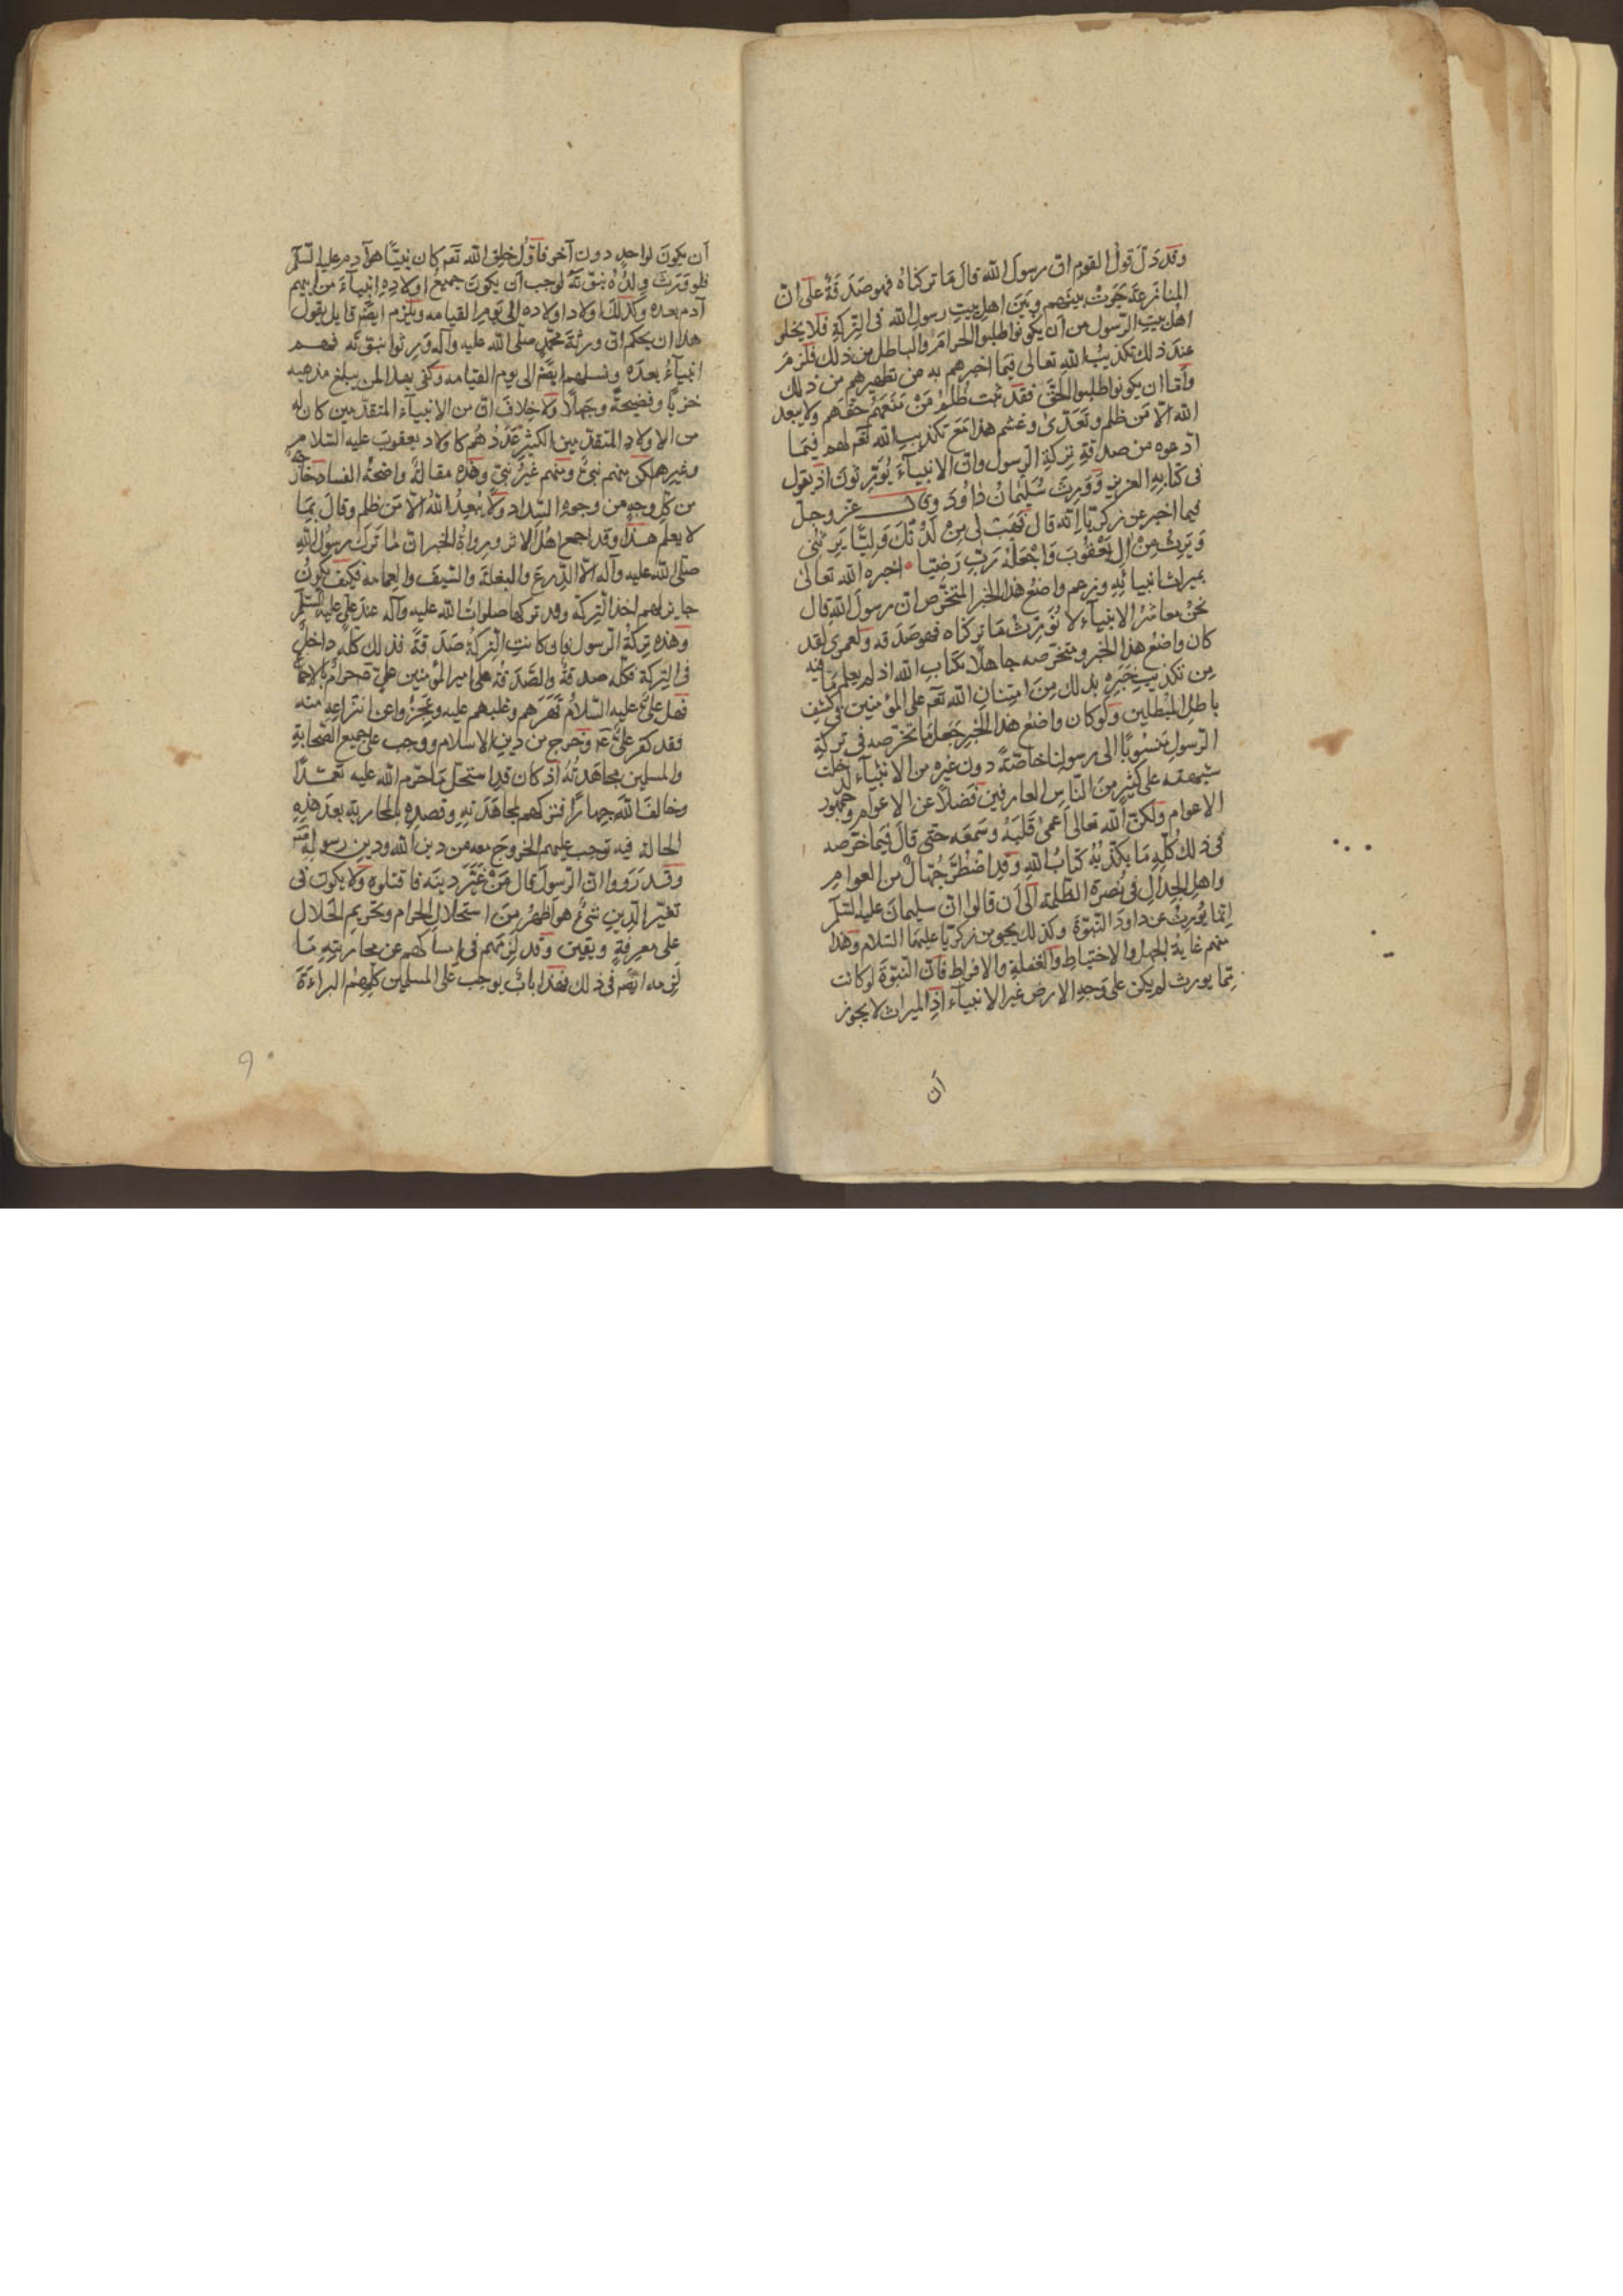 وقد دلّ قول القوم ان رسول الله قال مَا تركناهُ فهو صَدَقَةٌ على انّ
المنازعة جَرَتْ بينهم وبَيَن اهلِ بيتِ رسولِ الله فى التركة فلا يخلو
اهلُ بيتِ الرّسول من اَن يكونوا طلبوا الحرامَ والباطل من ذلك فلزم
عندَ ذلك تكذيبُ الله تعالى فيما اخبرهم به من تطهيرهم من ذلك
وامّا ان يكونوا طلبوا الحقّ فقد ثبت ظُلمُ مَنْ مَنَعَهُمْ حقّهم ولا يبعد
الله الّا مَن ظلم وتَعَدّى وغشم هذا مَعَ تكذيبِ الله تعٓم لهم فيمَا
ادعوه من صدقةِ تركةِ الرسول وان الانبيآءَ يُوَرِّثونَ اذ يقول
فى كتابِهِ العزيز وَوَرِثَ سُلَيْمانُ دَاوُدَ وى عزوجلّ
فيما اخبر عن زكريّا انّه قال فَهَبْ لى مِنْ لَدُنْكَ وَلِيًّا يَرِثُنى
وَيَرِثُ مِنْ اٰلِ يَعْقُوبَ وَاجْعَلْهُ رَبِّ رَضِيّا اخبره الله تعالى
بميراث انبيائِهِ وزعم واضعُ هذا الخبر المتخرّص ان رسولَ اللهِ قال
نحنُ معاشرُ الانبيآء لا نُورِثُ مَا تركناه فهو صَدَقه ولعمرى لقد
كان واضعُ هذا الخبر ومتخرّصه جاهلًا بكتابِ الله اذ لم يعلم مَا فيه
مِن تكذيبِ خَبَرِه بذلك مِنَ امتِنانِ الله تعٓم على المؤمنين فى كشفِ
باطلِ المبْطلين ولو كان واضعُ هذا الخبرِ جَعَلَ مَا تخرّصه فى تركةِ
الرسولِ مَنسُوبًا الى رسولنا خاصّةً دون غيرِه من الانبيآء لدخلت
شبهته على كثيرٍ مِنَ النّاسِ العارفين فضلًا عن الاعوام وجمهور
الاعوام ولكنّ الله تعالى اَعمىٰ قلبَهُ وسَمعَه حتى قالَ فيمَا خرّصه
فى ذلك كُلّهِ مَا يكذّبُهُ كتابُ اللهِ وقدِ اضْطُرَّ جُهّالٌ من العوامِ
واهلِ الجدالِ فى نُصرةِ الظلمة الى اَن قالوا انّ سليمانَ عليه السّلم
انّما يُورِثُ عن داودَ النّبُوّةَ وكذلك يحيى من زكريّا عليهمَا السّلام وهذا
منهم غايةُ الجهلِ والاختباطِ والغفلةِ والافراط فانّ النّبوّةَ لو كانت
ممّا يورث لم يكن على وَجهِ الارضِ غيرُ الانبيآء اذِ الميراث لا يجوز
اَن
اَن يكونَ لواحدٍ دون آخر فاوّل خلق الله تعٓم كان نبيًّا هو آدم عليه السّلم
فلو وَرِثَ ولدُهُ نبوّتَه لوجب اَن يكونَ جميعُ اولادِهِ انبيآءَ من ابيهم
آدم بعده وكذلك اولاد اولاده الى يوم القيامه ويلزم ايضًا قايل يقول
هذا ان يحكم ان ورثةَ محمّدٍ صلّى الله عليه وآله وَرِثوا نبوّته فهم
انبيآءُ بعدَه ونسلهم ايضًا الى يوم القيامه وكفى بهذا لمن يبلغ مذهبه
خزيًا وفضيحةً وجَهلًا ولا خلافَ ان من الانبيآءِ المتقدّمين كان له
من الاولادِ المتقدّمين الكثيرُ عَدَدُهُم كاولاد يعقوبَ عليه السّلام
وغيرهم لكن منهم نبىٌّ ومنهم غيرُ نبىّ وهٰذه مقالةٌ واضحةُ الفساد خارجة
من كلّ وجهٍ من وجوه السّداد ولا يُبْعِدُ اللهُ الّا مَن ظلم وقالَ بمَا
لا يعلم هٰذا وقد اجمع اهلُ الاثر ورواةُ الخبر ان لما تركَ رسولُ اللهِ
صلّى الله عليه وآله الّا الدِّرعَ والبغلةَ والسّيفَ والعمامة فكيف يكونُ
جايز لهم اخذ التركة وقد تركها صلواتُ الله عليه وآله عند علىٍّ عليه السّلم
وهذه تركةُ الرسول فلو كانتِ التركةُ صَدَقةً فذلك كلُّه داخلٌ
فى التركة فكلّه صدقةٌ والصّدقةُ على امير المؤمنين علىّ حرامٌ بالاجماع
فهل علىٌّ عليه السّلامُ قَهَرَهم وغلبهم عليه وعَجَزُوا عن انتزاعِهِ منه
فقد كفر علىٌّ عٓم وخَرج من دينِ الاسلام ووجب على جميع الصّحابةِ
والمسلمين مجاهَدَتُهُ اذ كان قدِ استحلّ مَا حرّم الله عليه تعمّدًا
وخالفَ اللّهَ جِهارًا فتركهم لمجاهَدَتِهِ وقصدِهِ بالمحاربةِ بعدَ هٰذِهِ
الحالة فيه توجب عليهم الخروجَ معه من دينِ الله ودينِ رسولِهِ
وقد رَوَوا ان الرّسولَ قال مَنْ غَيَّر دينَه فاقتلوه ولا يكون فى
تغيّر الدِّينِ شئٌ هو اظهرُ مِنَ استحلالِ الحرام وتحريمِ الحلال
على معرفةٍ ويقين وقد لزمهم فى امساكهم عن محاربتِهِ مَا
لزمه ايضًا فى ذلك فهٰذا بابٌ يوجب على المسلمين كلّهِم البراءةَ